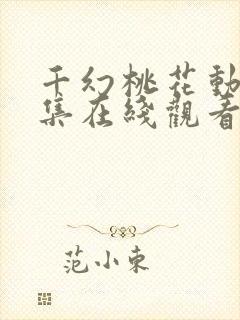 千幻桃花動
集在綫觀看
范小東